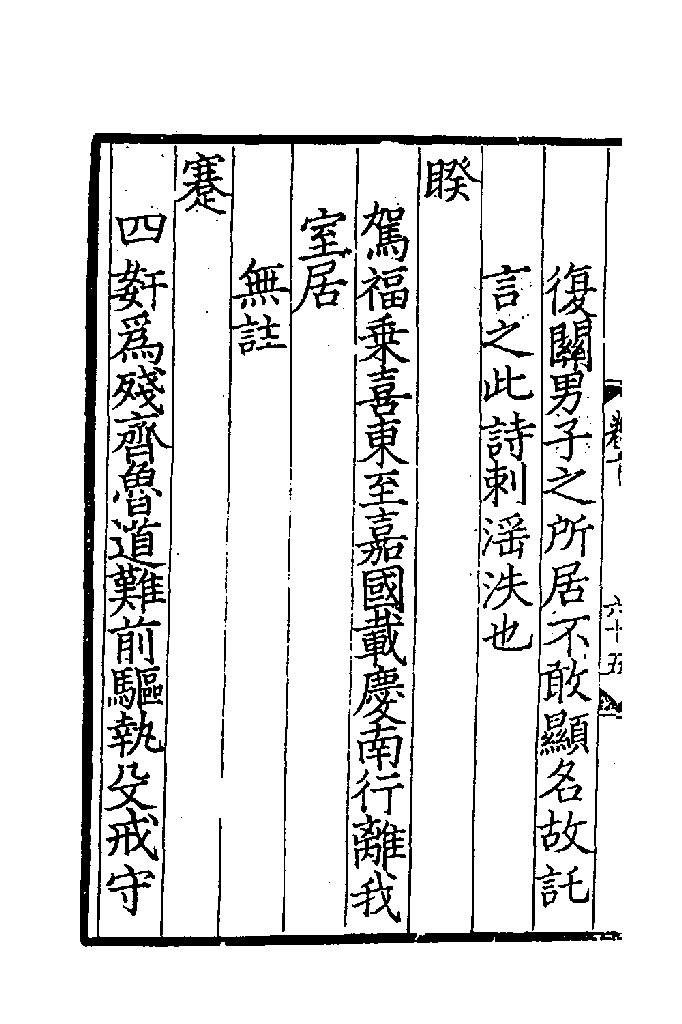 復關男子之所居不敢顯名故託
言之此詩刺淫泆也
睽
駕福乗喜東至嘉國載慶南行離我
室居
無註
蹇
四姧為殘齊魯道難前驅執殳戒守
六十五